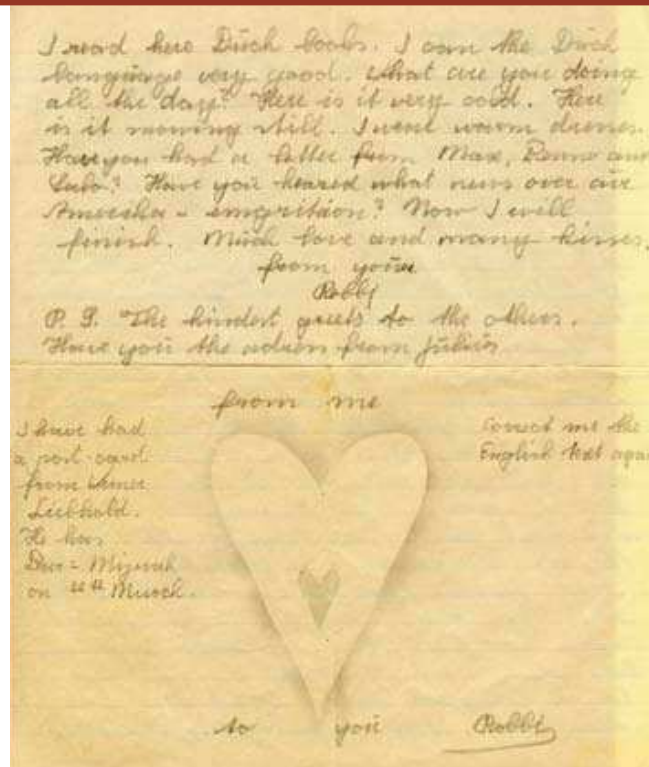 I read here Düch books. I can the Düch
language very good. What are you doing
all the day? Here is it very cold. Here
is it snowing still. I wear warm dresses.
Have you had a letter from Max, Benno and
Have you heared what news over our
Amerika - emigrition? Now I will
finish. Müch love and many kisses.
from your
Robbi
P. S. The kindest greets to the others.
Have you the adress from Julius
from me
I have had
a post-card
from
He has
Bar = Mizwah
on March.
Correct me the
English text again
to you Robbi